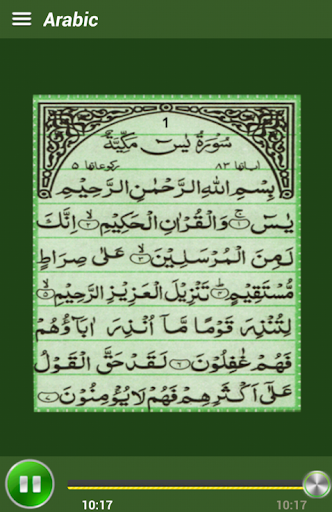 Arabic
1
سُوْرَةُ يٰسٓ مَكِّيَّةٌ
اٰیاتها ٨٣ رکوعاتها ٥
بِسْمِ اللهِ الرَّحْمٰنِ الرَّحِيْمِ
يٰسٓ ۝١ وَالْقُرْاٰنِ الْحَكِيْمِ ۝٢ اِنَّكَ
لَمِنَ الْمُرْسَلِيْنَ ۝٣ عَلٰى صِرَاطٍ
مُّسْتَقِيْمٍ ۝٤ تَنْزِيْلَ الْعَزِيْزِ الرَّحِيْمِ ۝٥
لِتُنْذِرَ قَوْمًا مَّآ اُنْذِرَ اٰبَآؤُهُمْ
فَهُمْ غٰفِلُوْنَ ۝٦ لَقَدْ حَقَّ الْقَوْلُ
عَلٰٓى اَكْثَرِهِمْ فَهُمْ لَا يُؤْمِنُوْنَ ۝٧
10:17 10:17